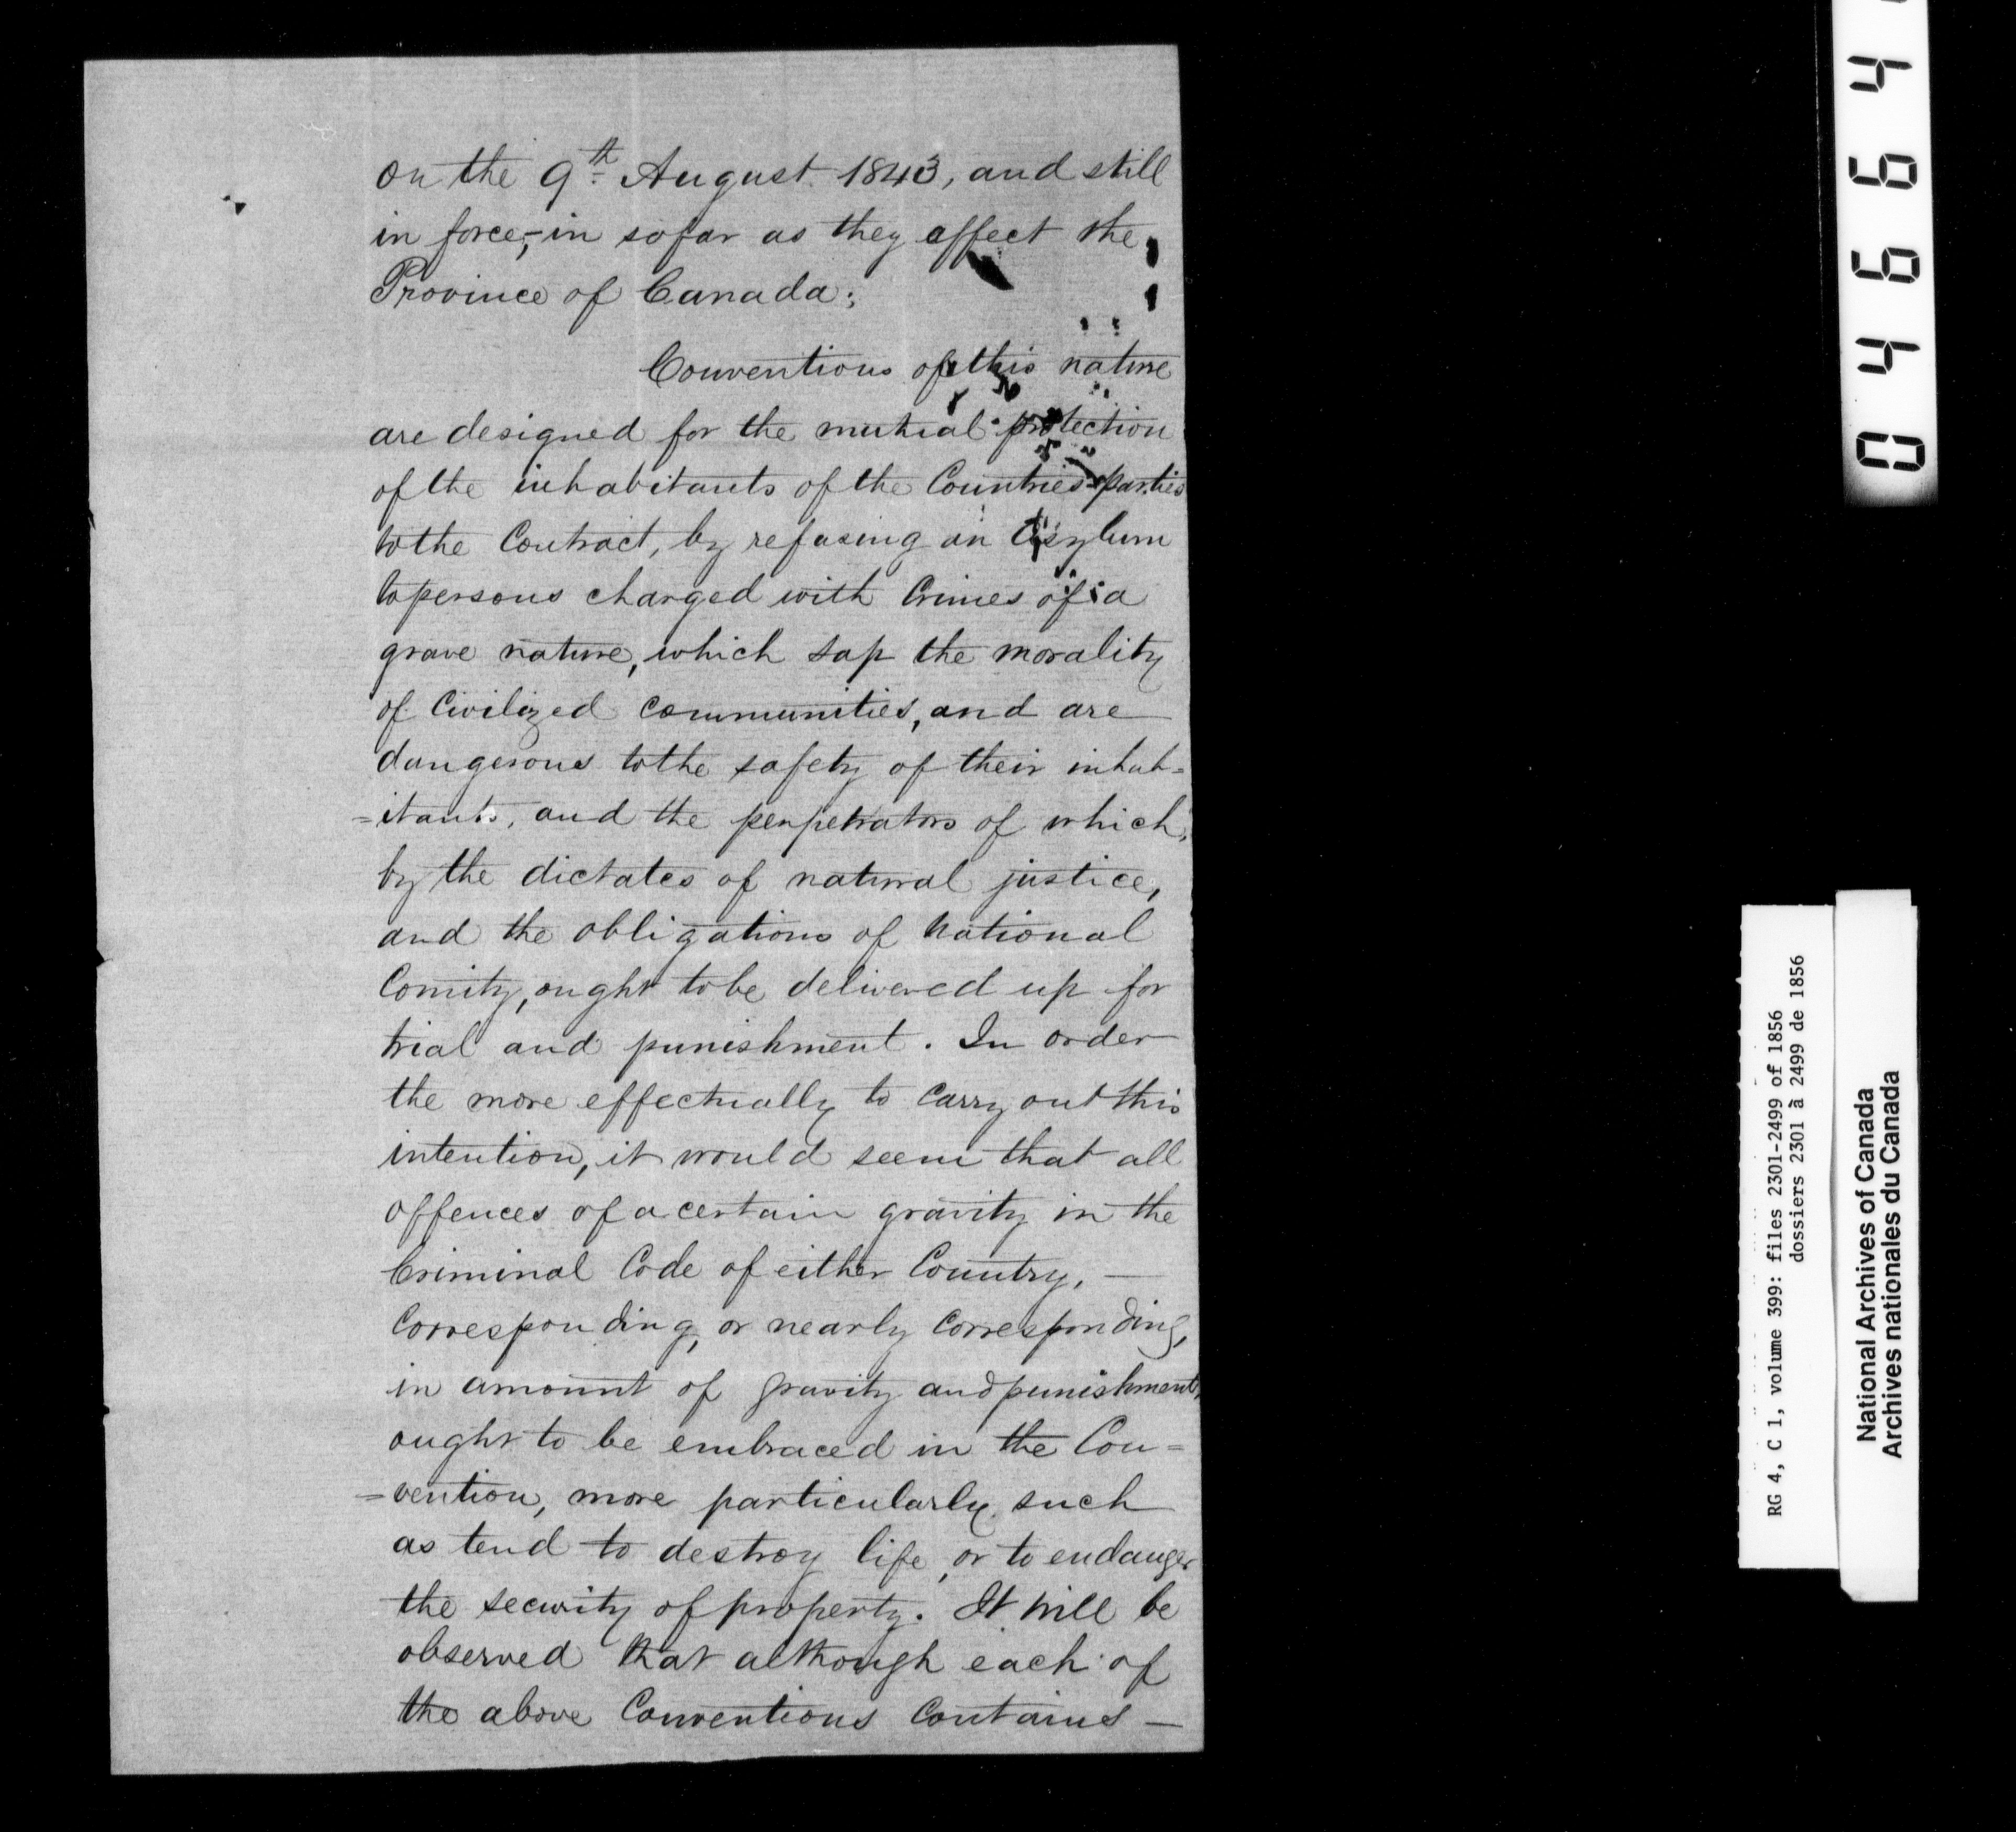 on the 9th August 1843, and still
in force,-in sofar as they affect the
Province of Canada;
Conventions of this nature
are designed for the mutual protection
of the inhabitants of the Countries parties
to the Contract, by refusing an Asylum
to persons charged with Crimes of a
grave nature, which sap the morality
of Civilized Communities, and are
dangerous to the safety of their inhab=
=itants, and the perpetrators of which,
by the dictates of natural justice,
and the obligations of National
Comity, ought to be delivered up for
trial and punishment. In order
the more effectually to carry out this
intention, it would seem that all
offences of a certain gravity in the
Criminal Code of either Country, —
Corresponding, or nearly Corresponding,
in amount of gravity and punishment,
ought to be embraced in the Con=
=vention, more particularly such
as tend to destroy life, or to endanger
the security of property. It will be
observed that although each of
the above Conventions Contains —
04664
RG 4, C 1, volume 399: files 2301-2499 of 1856
dossiers 2301 à 2499 de 1856
National Archives of Canada
Archives nationales du Canada